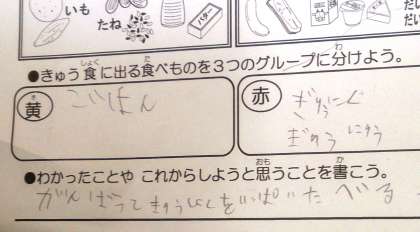 いも
たね
バター
だい
だい
●きゅう食に出る食べものを3つのグループに分けよう。
しょく で た わ
黄 ごはん
き
赤 ぎゅうにく
ぎゅうにゅう
●わかったことや これからしようと思うことを書こう。
おも か
がんばってきゅうしょくをいっぱいたべる